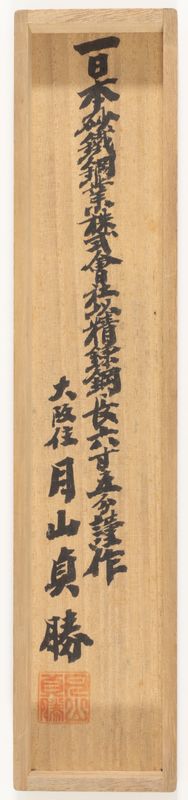 一日本砂鐵鋼業株式會社以精錬鋼長六寸五分謹作
大阪住月山貞勝
月山貞勝